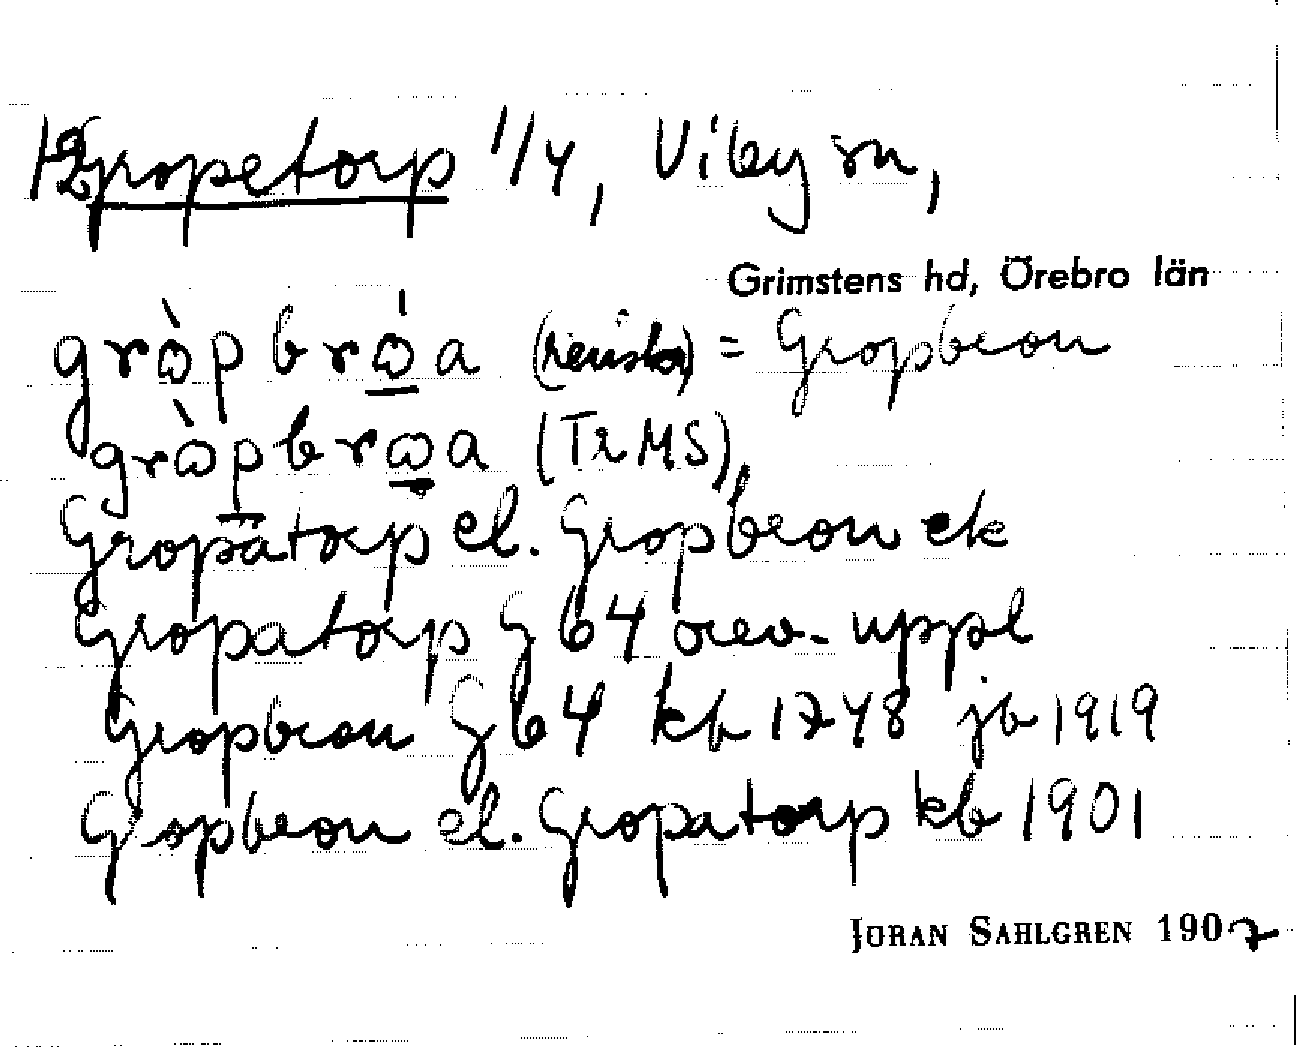 Gropetorp 1/4, Viby sn,
Grimstens hd, Örebro län
gròpbróa = Gropbron
gròpbroa (TrMS)
Gropätorp el. Gropbron ek
Gropatorp G64 örev. uppl
Gropbron G64 kb 1748 jb 1919
Gropbron el. Gropatorp kb 1901
JÖRAN SAHLGREN 1907